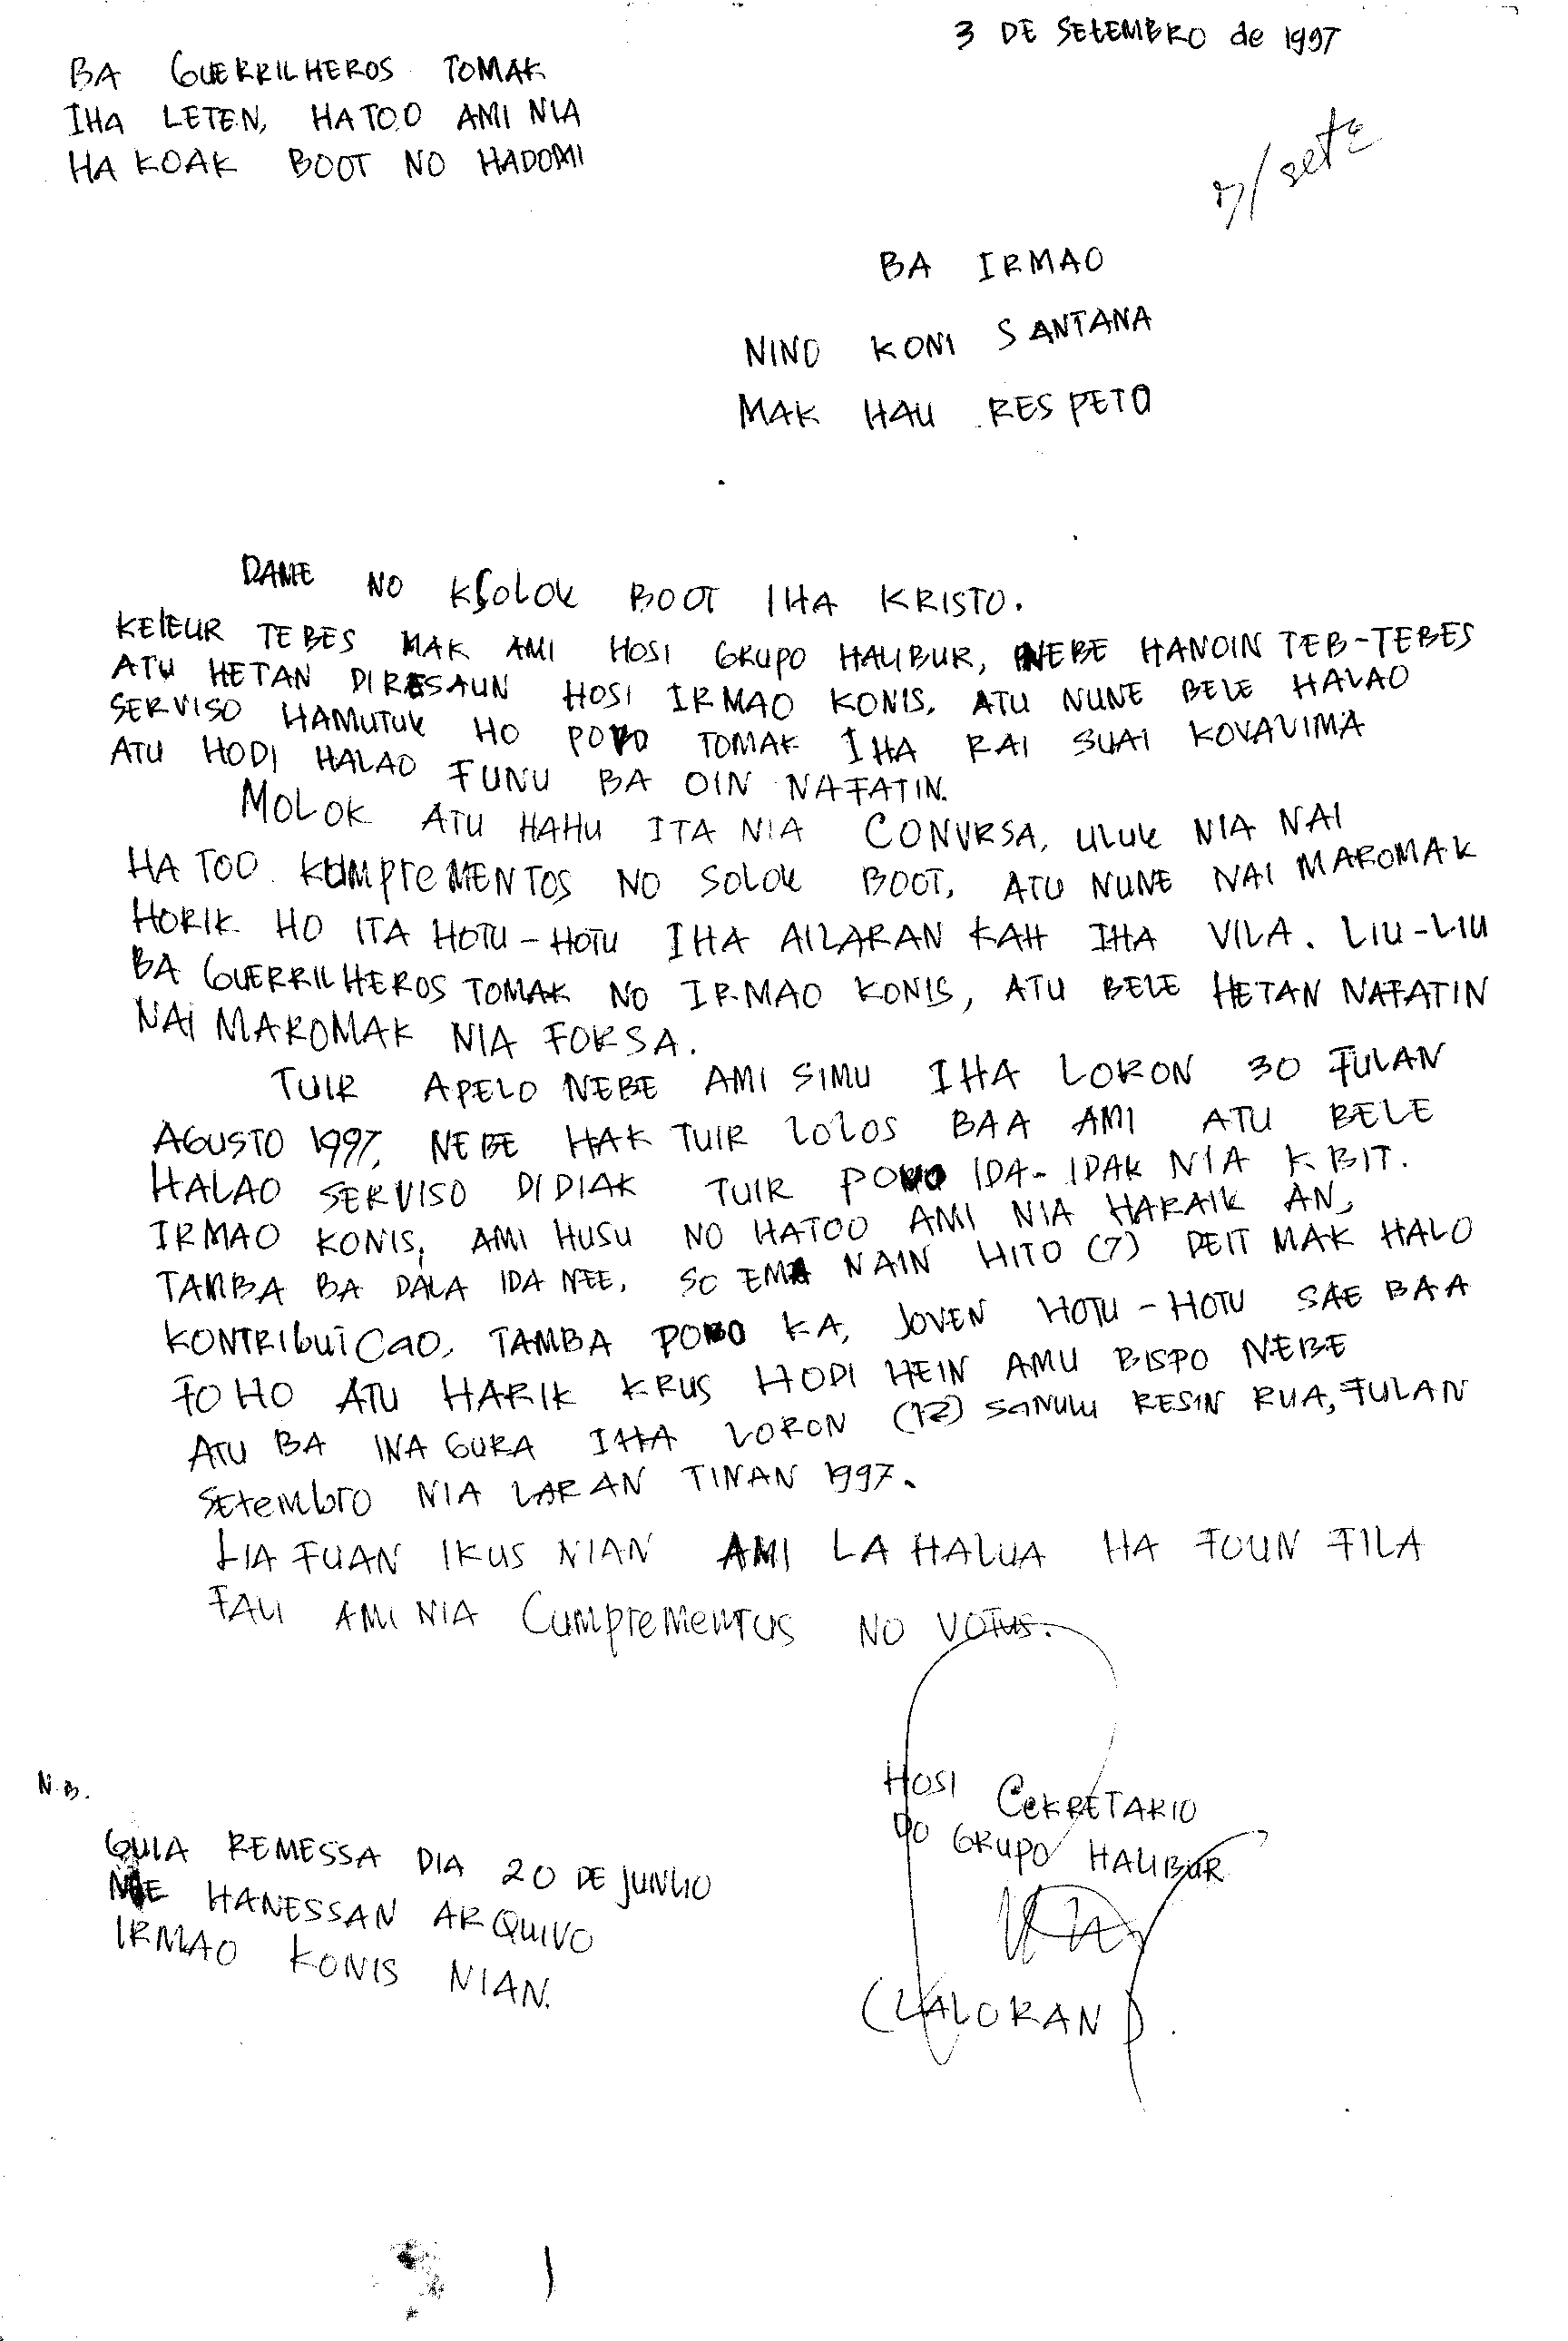 3 DE SEtEMBRO de 1997
BA GUERRILHEROS TOMAK
IHA LETEN, HATOO AMI NIA
HA KOAK BOOT NO HADOMI
7/sete
BA IRMAO
NINO KONI SANTANA
MAK HAU RESPETO
DAME NO KSOLOK BOOT IHA KRISTO.
KELEUR TEBES MAK AMI HOSI GRUPO HALIBUR, NEBE HANOIN TEB-TEBES
ATU HETAN DIRESAUN HOSI IRMAO KONIS, ATU NUNE BELE HALAO
SERVISO HAMUTUK HO POVO TOMAK IHA RAI SUAI KOVALIMA
ATU HODI HALAO FUNU BA OIN NAFATIN.
MOLOK ATU HAHU ITA NIA CONVRSA, ULUK NIA NAI
HA TOO KUMPreMENTOS NO SOLOK BOOT, ATU NUNE NAI MAROMAK
HORIK HO ITA HOTU-HOTU IHA AILARAN KAH IHA VILA. LIU-LIU
BA GUERRILHEROS TOMAK NO IRMAO KONIS, ATU BELE HETAN NAFATIN
NAI MAROMAK NIA FORSA.
TUIR APELO NEBE AMI SIMU IHA LORON 30 FULAN
AGUSTO 1997, NEBE HAK TUIR LOLOS BAA AMI ATU BELE
HALAO SERVISO DIDIAK TUIR POVO IDA-IDAK NIA KBIT.
IRMAO KONIS, AMI HUSU NO HATOO AMI NIA HARAIK AN,
TAMBA BA DALA IDA NEE, SO EMA NAIN HITO (7) DEIT MAK HALO
KONTRIbUICAO, TAMBA POVO KA, JOVEN HOTU-HOTU SAE BAA
FOHO ATU HARIK KRUS HODI HEIN AMU BISPO NEBE
ATU BA INA GURA IHA LORON (12) SANULU RESIN RUA, FULAN
SEtembro NIA LARAN TINAN 1997.
LIA FUAN IKUS NIAN AMI LA HALUA HA FOUN FILA
FALI AMI NIA CumpremenTUS NO VOTUS.
N.B.
HOSI CEKRETARIO
DO GRUPO HALIBUR
GUIA REMESSA DIA 20 DE JUNHO
NEE HANESSAN ARQUIVO
IRMAO KONIS NIAN.
(LALORAN).